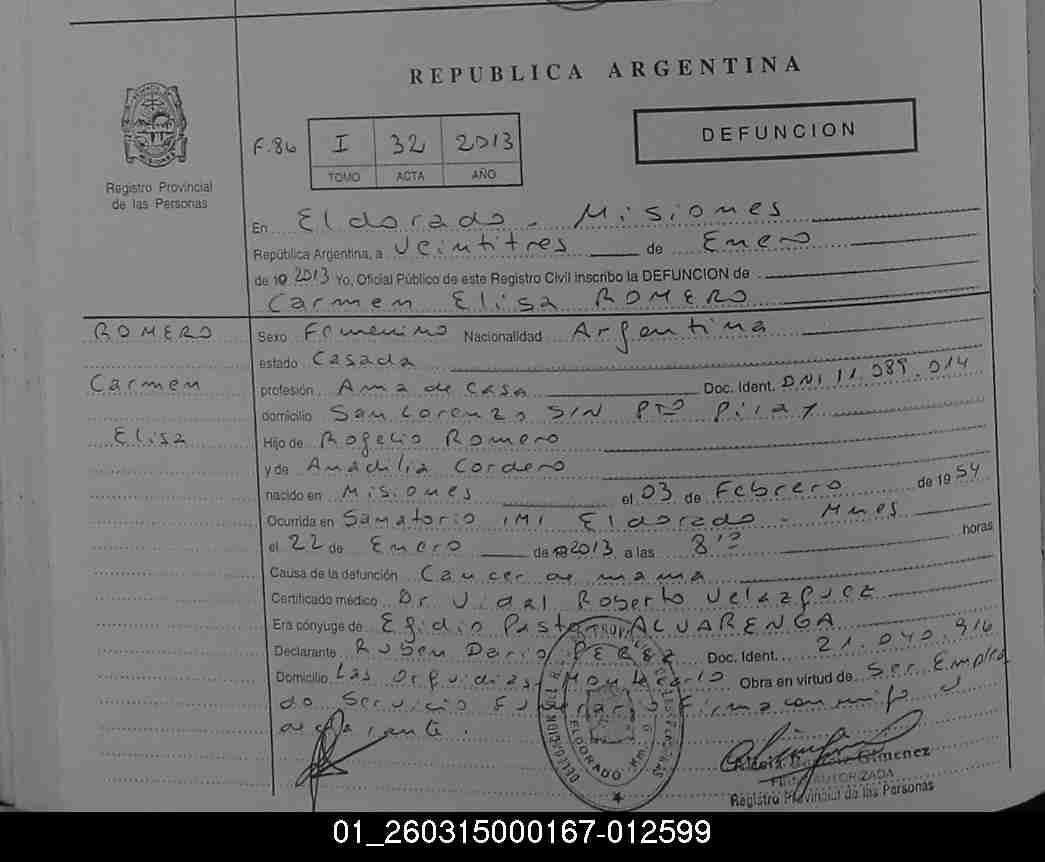 REPUBLICA ARGENTINA
Registro Provincial
de las Personas
F.86 I 32 2013
TOMO ACTA AÑO
DEFUNCION
En Eldorado - Misiones
República Argentina, a Veintitres de Enero
de 19 2013 Yo, Oficial Público de este Registro Civil inscribo la DEFUNCION de
Carmen Elisa ROMERO
ROMERO
Carmen
Elisa
Sexo Femenino Nacionalidad Argentina
estado Casada
profesión Ama de casa Doc. Ident. DNI 11.089.014
domicilio San Lorenzo S/N Pto Piray
Hijo de Rogelio Romero
y de Anadilia Cordero
nacido en Misiones el 03 de Febrero de 1954
Ocurrida en Sanatorio IMI Eldorado - Mnes
el 22 de Enero de 2013 a las 8 horas
Causa de la defunción Cancer de mama
Certificado médico Dr. Vidal Roberto Velazquez
Era cónyuge de Egidio ALVARENGA
Declarante Ruben Dario PEREZ Doc. Ident. 21.040.916
Domicilio Las Orquideas Montecarlo Obra en virtud de Ser Emplea
do Servicio Firma conmigo
ELDORADO
Gimenez
AUTORIZADA
Registro Provincial de las Personas
01_260315000167-012599